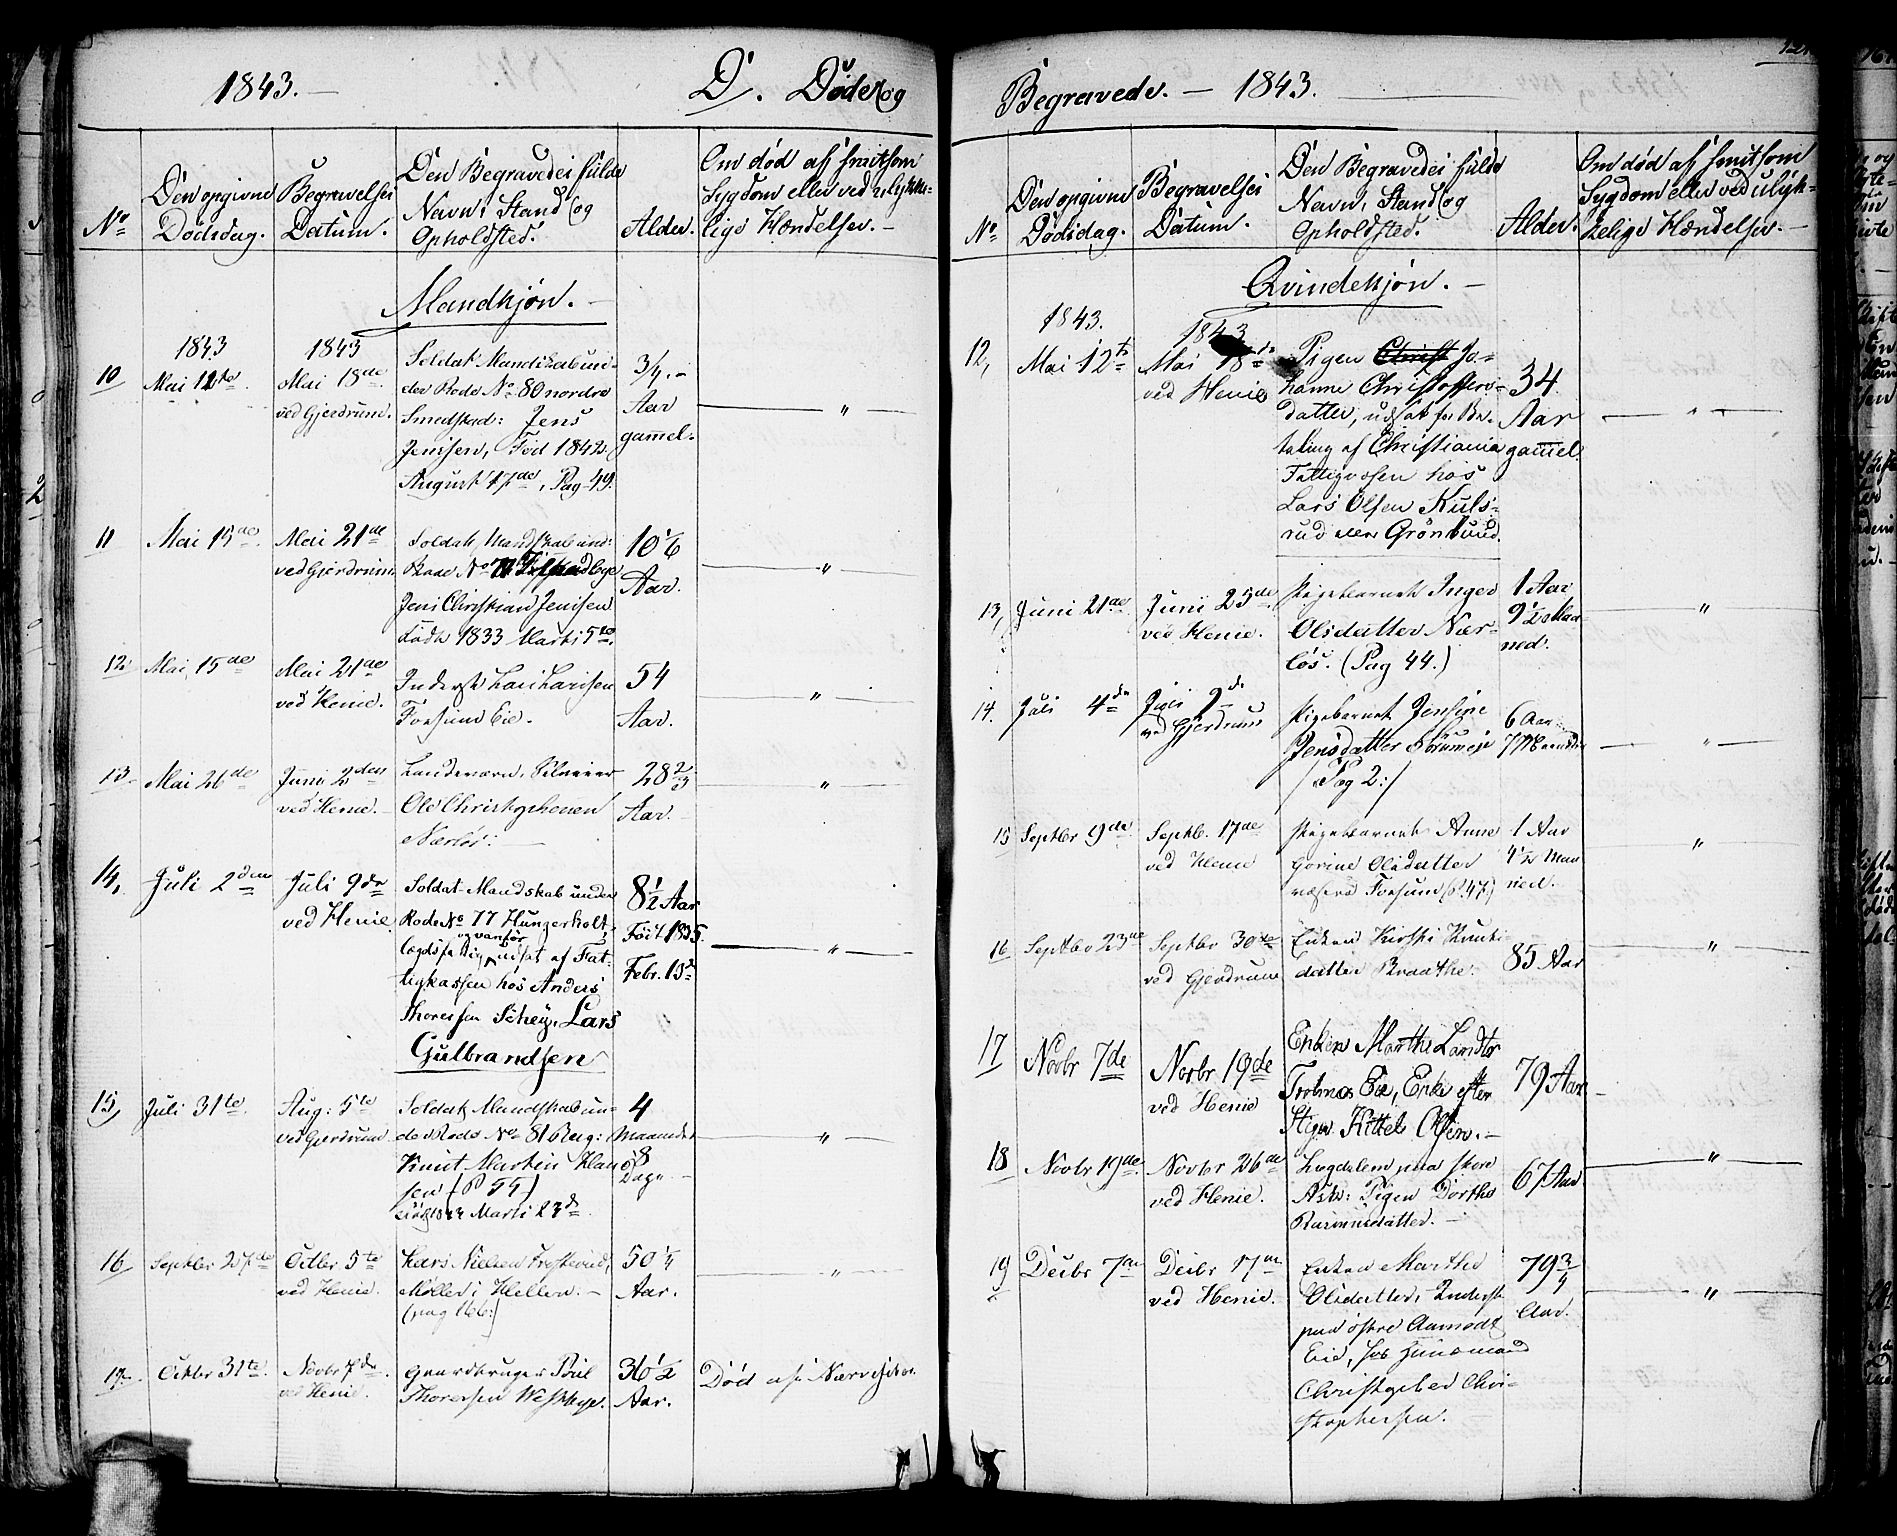 1843. — D. Døde og
No
Den opgivne
Dødsdag.
Begravelses
Datum.
Den Begravedes fulde
Navn, Stand og
Opholdsted.
Alder.
Om død af smitsom
Sygdom eller ved ulykke-
lige Hændelser. —
Mandkjøn. —
10
1843
Mai 12te.
1843
Mai 18de
ved Gjerdrum.
Soldat Mandskab un-
der Rode No 80 nordre
Smedstad: Jens
Jenssen, Fød 1842
August 17de, Pag 49.
3/4 -
Aar
gammel.
"
11
Mai 15de.
Mai 21de
ved Gjerdrum
Soldat, Mandskab und:
Rode No
Jens Christian Jenssen
født 1833 Marts 5te.
10 1/6
Aar.
"
12
Mai 15de
Mai 21de
ved Henie.
Inderst Lars Larssen
Fossum Eie.
54
Aar.
"
13
Mai 26de
Juni 2den
ved Henie. -
Landeværn,
Ole Christophersen
Nærløs: —
28 2/3
Aar. -
"
14,
Juli 2den
Juli 9de
ved Henie
Soldat Mandskab under
Rode No 77 Hungerholt,
og vanfør
lægdsfattig udsat af Fat-
tigkassen hos Anders
Thoressen Schey, Lars
Gulbrandsen
8 1/2 Aar
Født 1835.
Febr. 13de
"
15,
Juli 31te.
Aug: 5te
ved Gjerdrum
Soldat Mandskab un-
der Rode No 81 Ryg:
Knut Martin Hans-
sen (P 55)
født 1843 Marts 23de.
4
Maaneder
8
Dage
"
16
Septbr 27de
Octbr 5te
ved Henie.
Lars Nielsen
Møller i Hellen. —
(pag 166:)
50 1/4
Aar.
"
17
Octbr 31te.
Novbr 7de
ved Henie.
Gaardbruger Poul
Thoressen Westbye.
36 1/2
Aar.
Død af Nervefeber.
Begravede. — 1843.
No
Den opgivne
Dødsdag.
Begravelses
Datum.
Den Begravedes fulde
Navn, Stand og
Opholdsted.
Alder.
Om død af smitsom
Sygdom eller ved ulyk-
kelige Hændelser. —
Qvindekjøn. —
12,
1843.
Mai 12te
1843
Mai 18de
ved Henie
Pigen Christ Jo-
hanne Christoffers-
datter, udsat for Be-
taling af Christiania
Fattigvæsen hos
Lars Olsen Kuls-
rud eller Grønlund.
34
Aar
gammel.
"
13,
Juni 21de
Junii 25de
ved Henie.
Pigebarnet Inger
Olsdatter Nær-
løs. (Pag 44.)
1 Aar
9 1/2 Maa-
ned.
"
14.
Juli 4de
Juli 9de
ved Gjerdrum
Pigebarnet Jensine
Jensdatter
/ Pag 2:/
6 Aar
7 Maaneder
"
15
Septbr 9de
Septb. 17de
ved Henie
Pigebarnet Anne
Gorine Olsdatter
Fossum (P. 47.)
1 Aar
4 1/2 Maa
ned.
"
16
Septbr 23de
Septbr 30te
ved Gjerdrum
Enken Kirsti Knuts-
datter Braathe.
85 Aar
"
17
Novbr 7de
Novbr 19de
ved Henie
Enken Marthe Larsdtr
Eie, Enke efter
Kittel Olsen. —
79 Aar
18
Novbr 19de
Novbr 26de
ved Henie.
Lægdslem paa store
Ask: Pigen Dorthe
Rasmusdatter. —
67 Aar
"
19
Decbr 7de
Decbr 17de
ved Henie.
Enken Marthe
Olsdatter, Inderst
paa østre Aamodt
Eie, hos Huusmand
Christopher Chri-
stophersen. —
79 3/4
Aar.
"